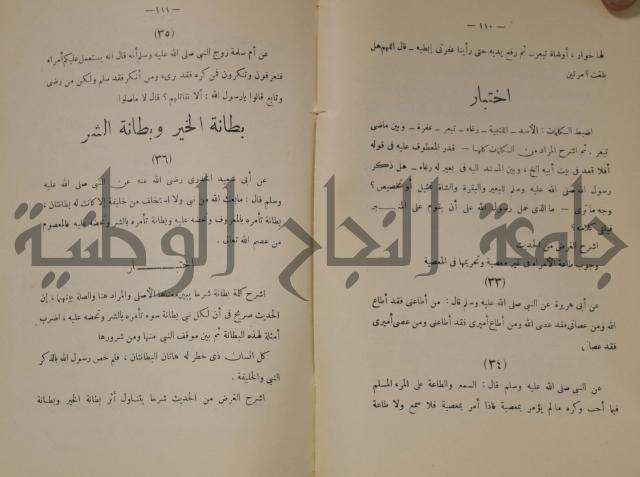 — ١١٠ —
لها خوار ، أوشاة تيعر ـ ثم رفع يديه حتى رأينا عفرتى إبطيه ـ قال اللهم هل
بلغت ؟ مرتين
اختبار
اضبط الكلمات : الأسد ـ اللتبية ـ رغاء ـ تيعر ـ عفرة ـ وبين ماضى
تيعر . ثم اشرح المراد من الكلمات كلها ـ قدر المعطوف عليه فى قوله
أفلا قعد فى بيت أبيه الخ ، وبين المسند اليه فى بعير له رغاء ـ هل ذكر
رسول الله صلى الله عليه وسلم للبعير والبقرة والشاة تمثيل أو تخصيص ؟
وجه ما ترى ـ ما الذى حمل رسول الله على أن يقوم على المنبر
كلامه ؟
اشرح الغرض من الحديث
وجوب طاعة الأمراء فى غير معصية وتحريمها فى المعصية
(٣٣)
عن أبى هريرة عن النبى صلى الله عليه وسلم قال : من أطاعنى فقد أطاع
الله ومن عصانى فقد عصى الله ومن أطاع أميرى فقد أطاعنى ومن عصى أميرى
فقد عصانى
(٣٤)
عن النبى صلى الله عليه وسلم قال : السمع والطاعة على المرء المسلم
فيما أحب وكره مالم يؤمر بمعصية فاذا أمر بمعصية فلا سمع ولا طاعة
— ١١١ —
(٣٥)
عن أم سلمة زوج النبى صلى الله عليه وسلم أنه قال انه يستعمل عليكم أمراء
فتعرفون وتنكرون فمن كره فقد برىء ومن أنكر فقد سلم ولكن من رضى
وتابع قالوا يارسول الله : ألا نقاتلهم ؟ قال لا ماصلوا
بطانة الخير وبطانة الشر
(٣٦)
عن أبى سعيد الخدرى رضى الله عنه عن النبى صلى الله عليه
وسلم قال : مابعث الله من نبى ولا استخلف من خليفة إلا كانت له بطانتان ،
بطانة تأمره بالمعروف وتحضه عليه وبطانة تأمره بالشر وتحضه عليه فالمعصوم
من عصم الله تعالى .
اختبار
اشرح كلمة بطانة شرحا يبين معناها الأصلى والمراد هنا والصلة بينهما ، إن
الحديث صريح فى أن لكل نبى بطانة سوء تأمره بالشر وتحضه عليه ، اضرب
أمثلة لهذه البطانة ثم بين موقف النبى منها ومن شرورها
كل انسان ذى خطر له هاتان البطانتان ، فلم خص رسول الله بالذكر
النبى والخليفة .
اشرح الغرض من الحديث شرحا يتناول أثر بطانة الخير وبطانة
جامعة النجاح الوطنية